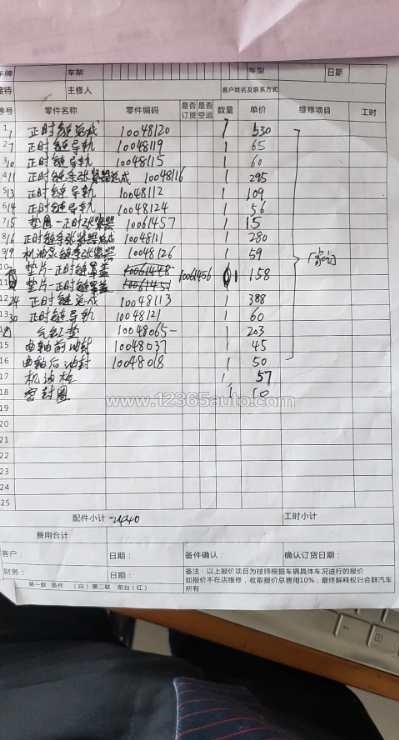 车牌 车架 车型 日期
接待 主修人 客户姓名及联系方式
序号 零件名称 零件编码 是否订货 是否空运 数量 单价 维修项目 工时
正时链总成 10048120 1 530
正时链导轨 10048119 1 65
正时链导轨 10048115 1 60
正时链条张紧器总成 10048116 1 295
正时链导轨 10048112 1 109
正时链导轨 10048124 1 56
垫圈-正时张紧器 10061457 1 15
正时链条张紧器总成 10048111 1 280
机油泵链条张紧器 10048126 1 59
垫片-正时链罩盖 10061456 1 158
垫片-正时链罩盖
正时链总成 10048113 1 388
正时链导轨 10048121 1 60
气缸垫 10048065 1 203
曲轴前油封 10048037 1 45
曲轴后油封 10048018 1 50
机油格 1 57
密封圈 1 10
www.12365auto.com
19
20
21
22
23
24
25
配件小计 工时小计
费用合计
客户: 日期: 备件确认: 确认订货日期:
财务: 日期: 备注:以上报价项目为接待根据车辆具体车况进行的报价
如报价不在店维修,收取报价总费用10%,最终解释权归合群汽车
所有
第一联 备件 (白) 第二联 前台 (红)